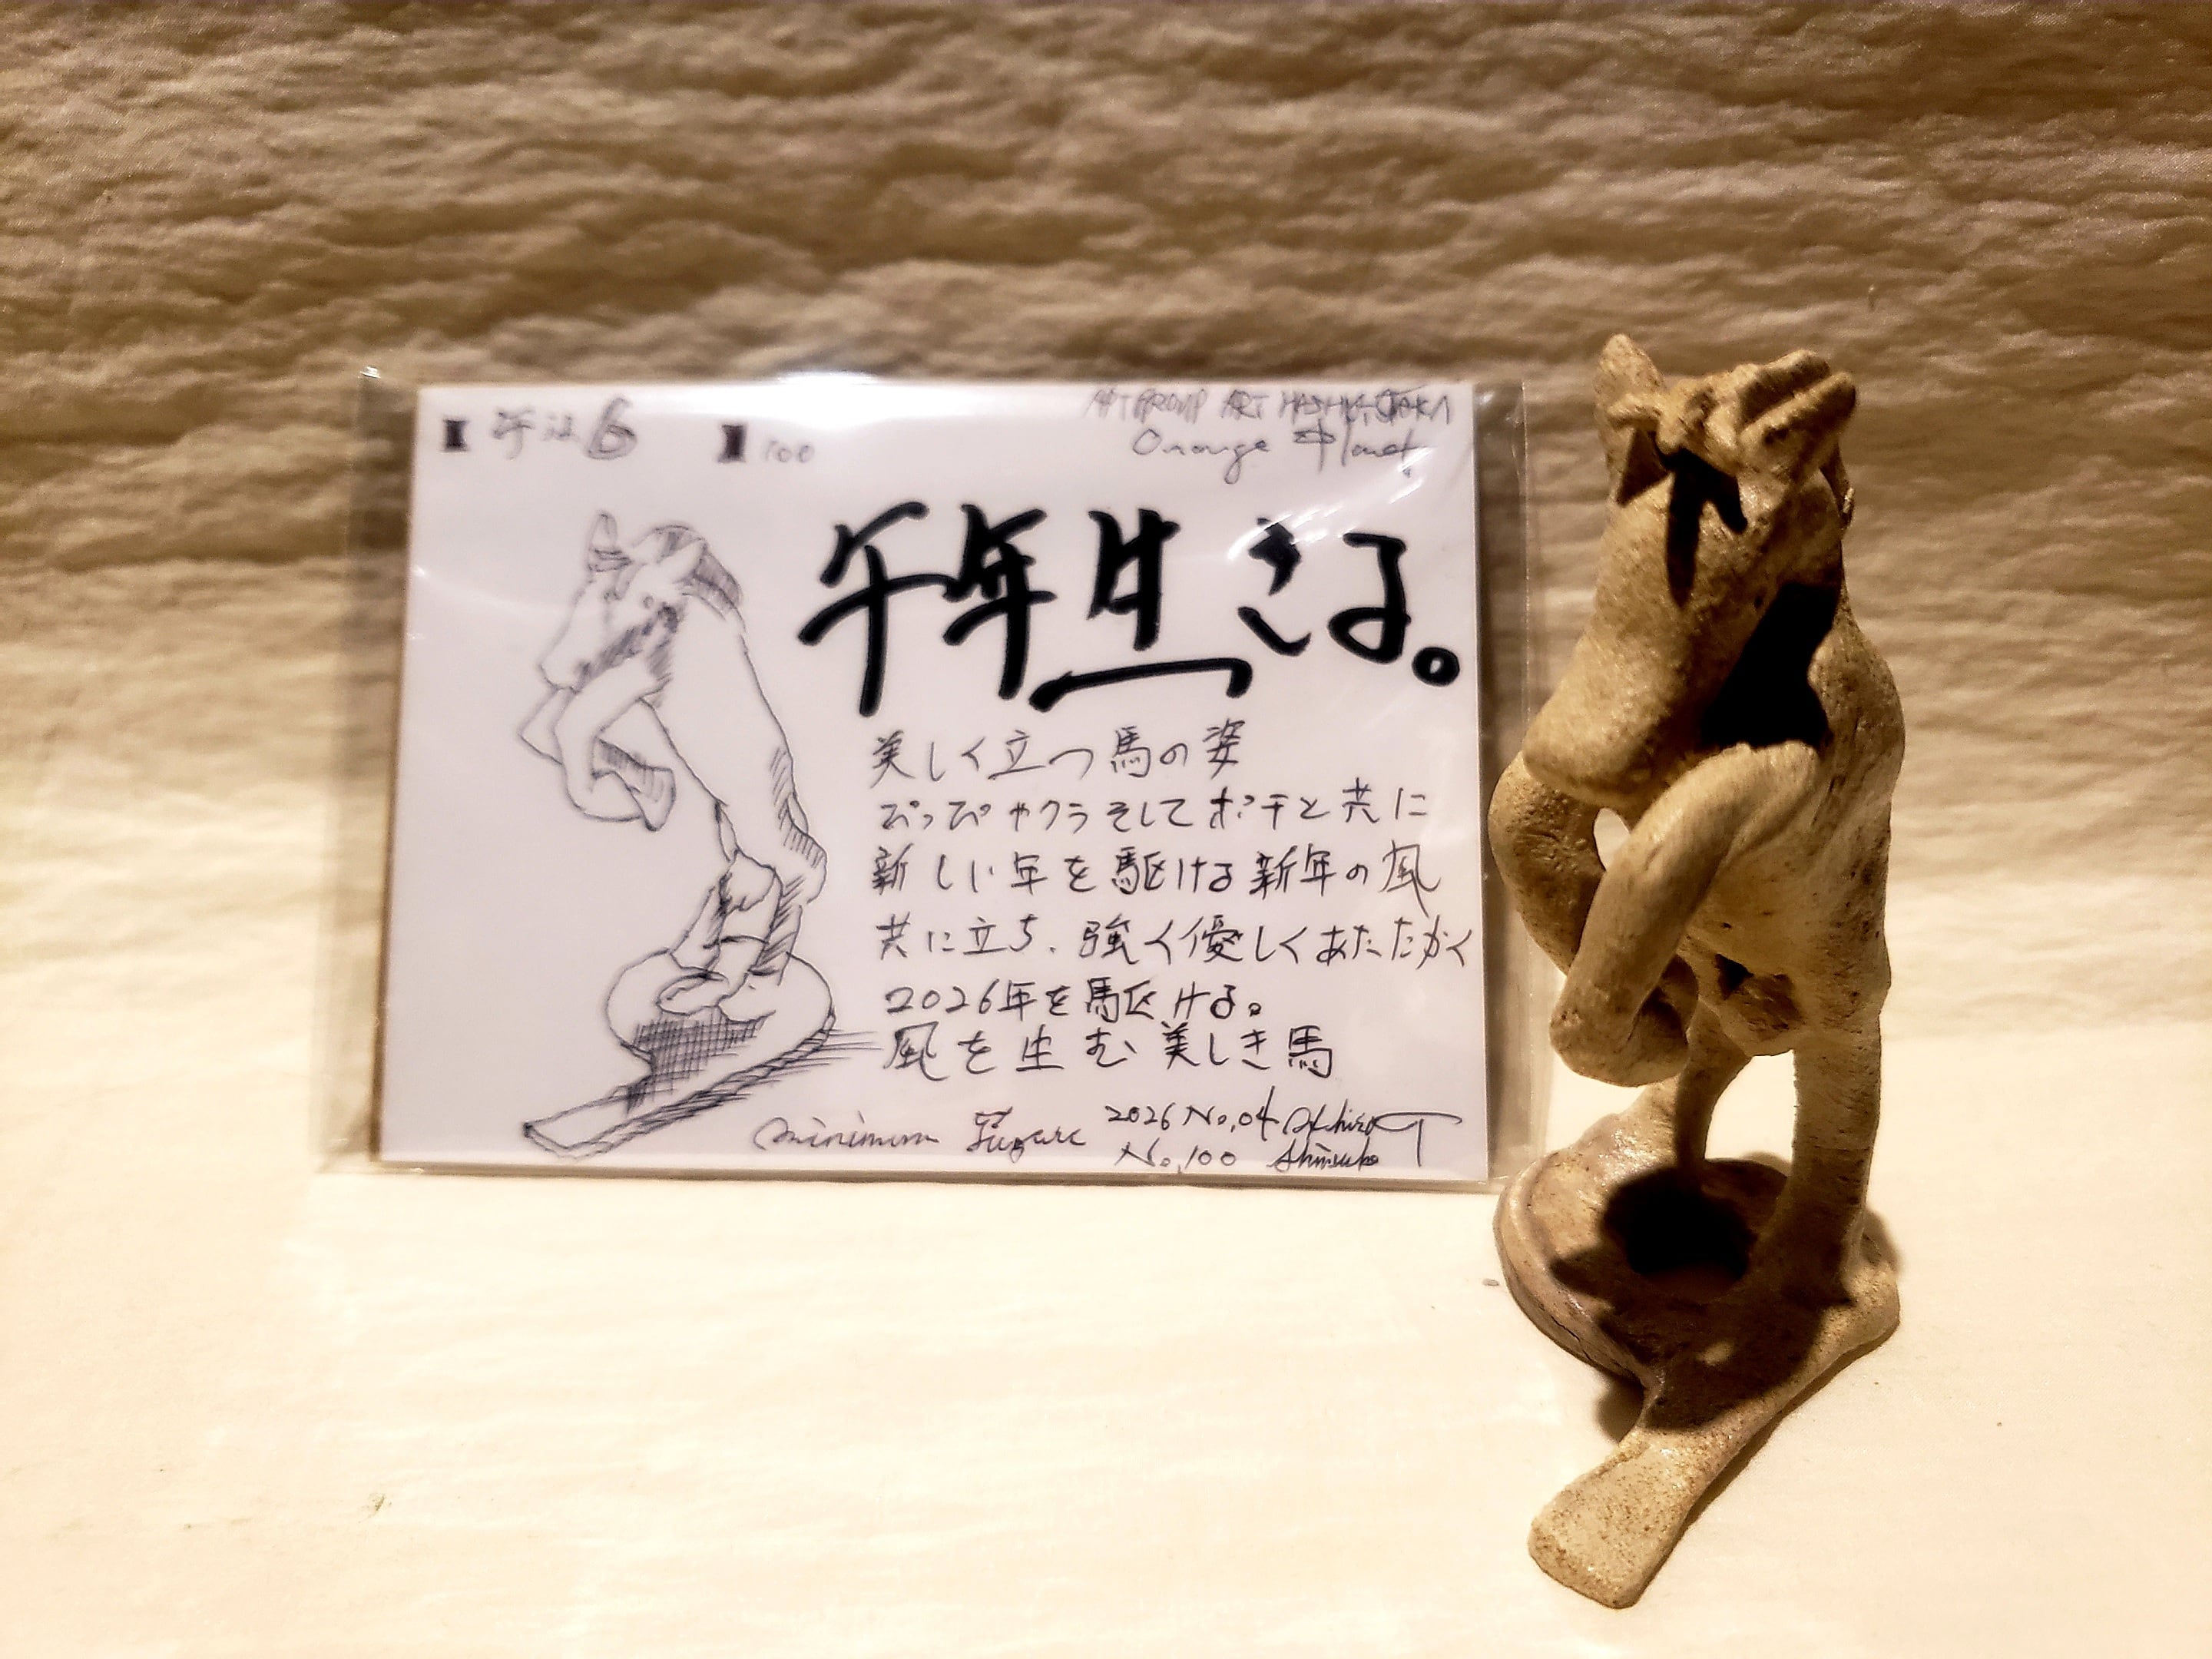 100
Orange Planet
午年生きる。
美しく立つ馬の姿
ぴっぴやクラそしてポチと共に
新しい年を駆ける新年の風
共に立ち、強く優しくあたたかく
2026年を駆ける。
風を生む美しき馬
minimum Figure 2026 No,04
No,100